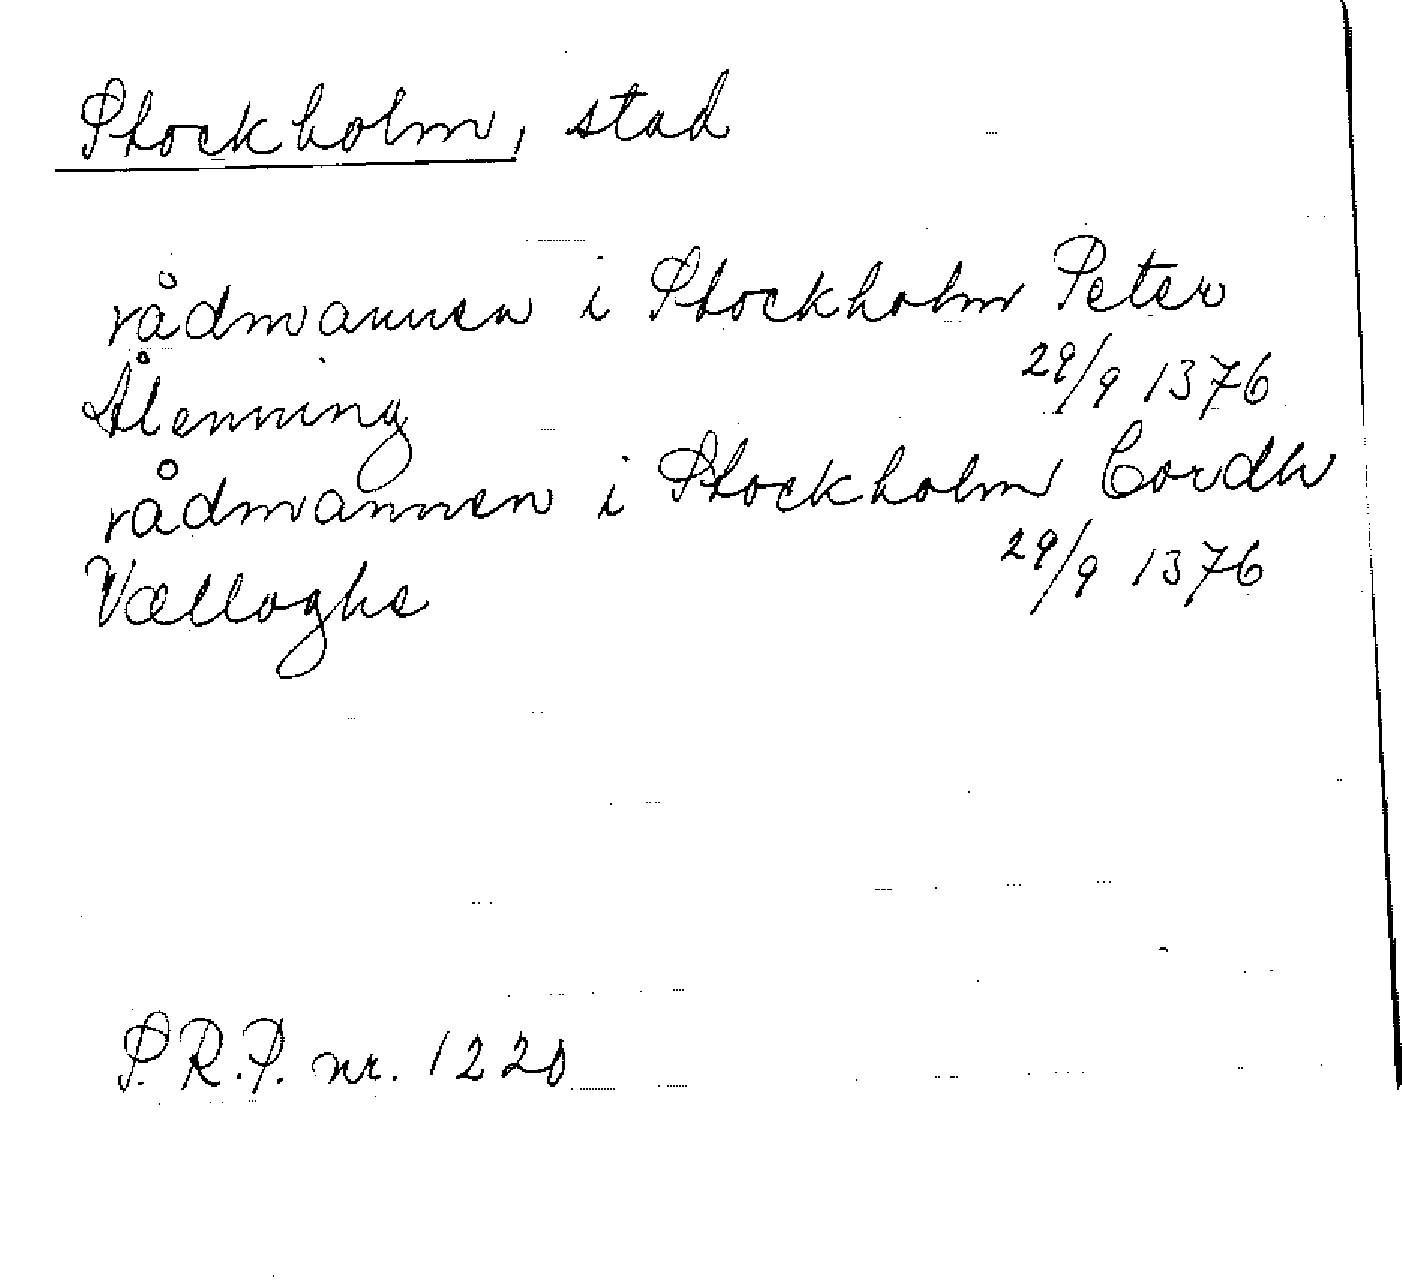 Stockholm, stad
rådmannen i Stockholm Peter
Ålenning 29/9 1376
rådmannen i Stockholm Cordh
Vælloghe 29/9 1376
S.R.P. nr. 1220